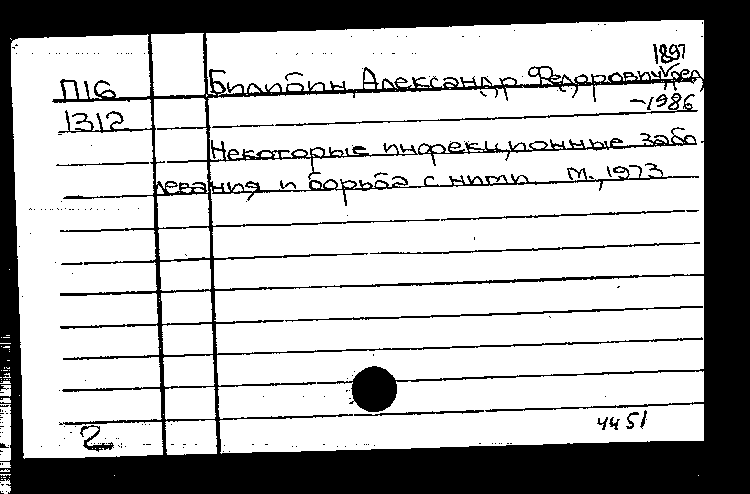 1897
П16 Билибин, Александр Федорович, ред.
1312 -1986
Некоторые инфекционные забо-
левания и борьба с ними. М., 1973
2 4451